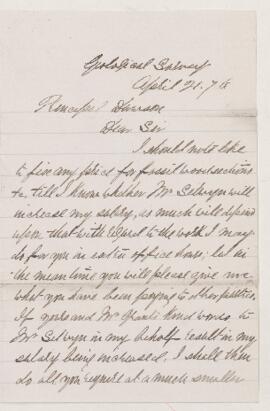 Geological Survey
April 21. 7
Principal Dawson
Dear Sir
I should not like
to fix any price for fossil wood sections
till I know whether Mr Selwyn will
increase my salary, as much will depend
upon that with regard to the work I may
do for you in extra office hours; but in
the mean time you will please give me
what you have been paying to other parties.
If yours and Mr Grants kind words to
Mr Selwyn in my behalf result in my
salary being increased. I shall then
do all you require at a much smaller